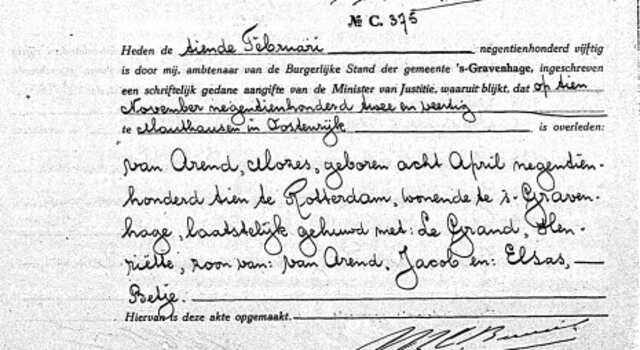 № C. 375
Heden de tiende Februari negentienhonderd vijftig
is door mij, ambtenaar van de Burgerlijke Stand der gemeente 's-Gravenhage, ingeschreven
een schriftelijk gedane aangifte van de Minister van Justitie, waaruit blijkt, dat op tien
November negentienhonderd twee en veertig
te Mauthausen in Oostenrijk is overleden:
van Arend, Mozes, geboren acht April negentien-
honderd tien te Rotterdam, wonende te 's-Graven-
hage, laatstelijk gehuwd met: Le Grand, Hen-
riëtte, zoon van: van Arend, Jacob en: Elsas,
Betje.
Hiervan is deze akte opgemaakt.